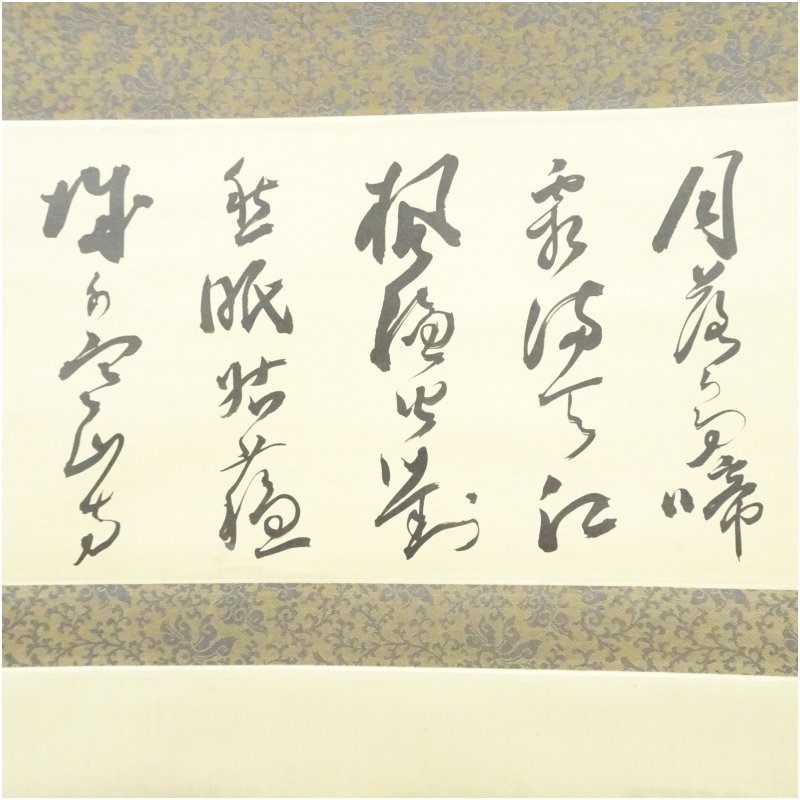 月落烏啼
霜満天江
楓漁火對
愁眠姑蘓
城外寒山寺